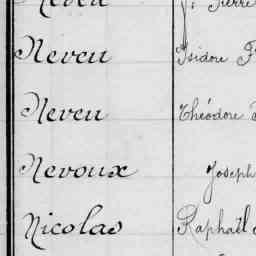 Neveu J. Pierre
Neveu Isidore F
Neveu Théodore
Nevoux Joseph
Nicolas Raphaël